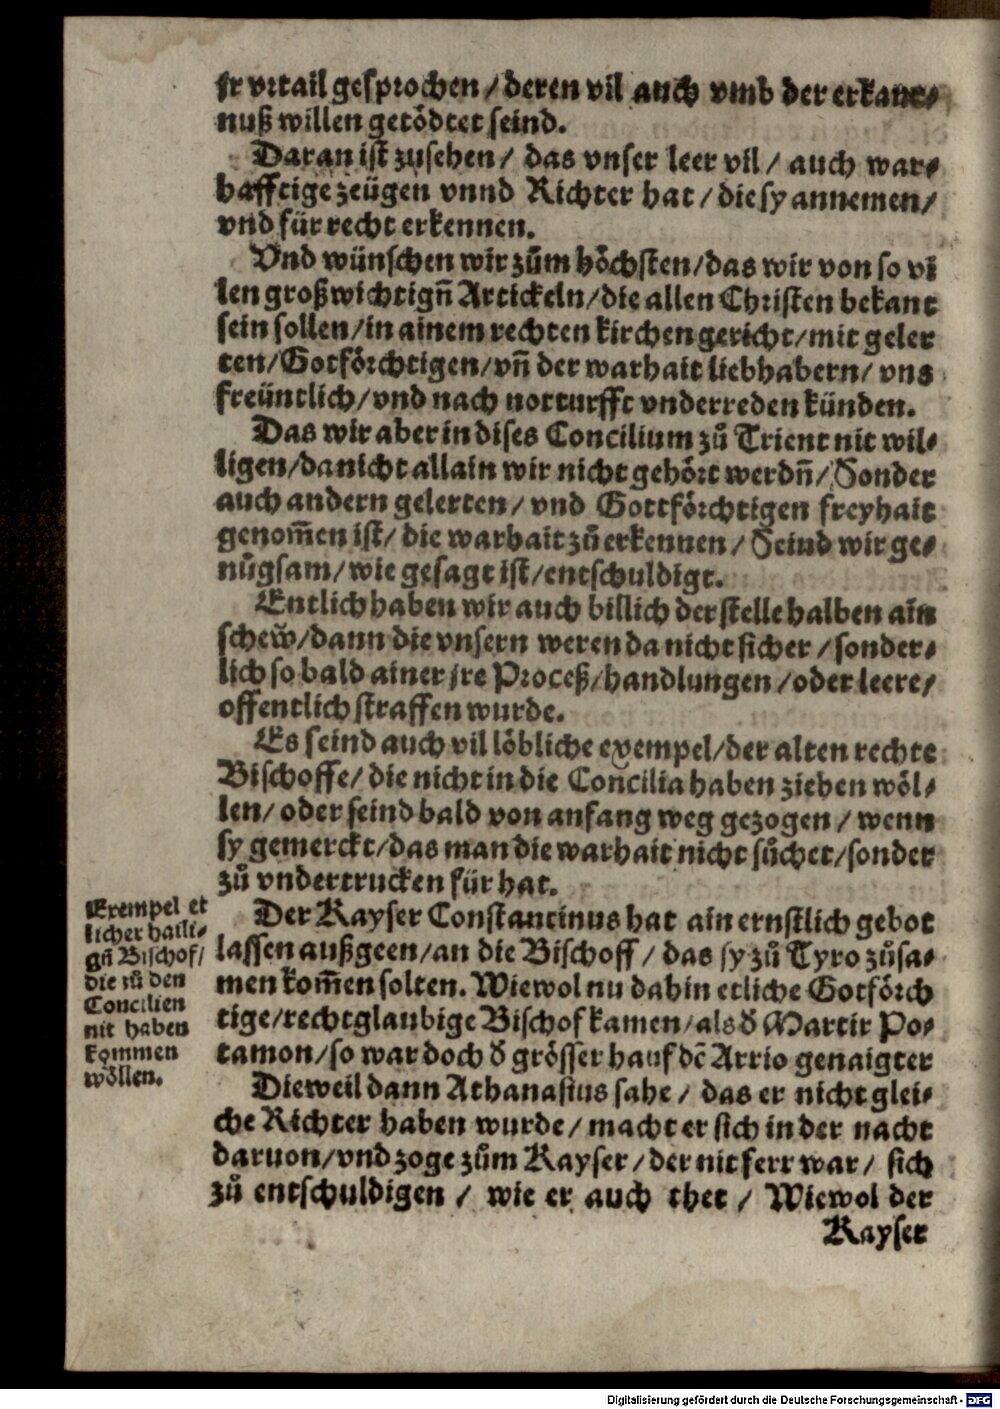 jr vrtail gesprochen / deren vil auch vmb der erkant⸗
nuß willen getödtet seind.
Daran ist zusehen / das vnser leer vil / auch war⸗
hafftige zeügen vnnd Richter hat / die sy annemen /
vnd für recht erkennen.
Vnd wünschen wir zům höchsten / das wir von so vi
len großwichtign̄ Artickeln / die allen Christen bekant
sein sollen / in ainem rechten kirchen gericht / mit geler
ten / Gotförchtigen / vn̄ der warhait liebhabern / vns
freüntlich / vnd nach notturfft vnderreden künden.
Das wir aber in dises Concilium zů Trient nit wil⸗
ligen / da nicht allain wir nicht gehört werdn̄ / Sonder
auch andern gelerten / vnd Gottförchtigen freyhait
genom̄en ist / die warhait zů erkennen / Seind wir ge⸗
nůgsam / wie gesagt ist / entschuldigt.
Entlich haben wir auch billich der stelle halben ain
schew / dann die vnsern weren da nicht sicher / sonder⸗
lich so bald ainer jre Proceß / handlungen / oder leere /
offentlich straffen wurde.
Es seind auch vil löbliche exempel / der alten rechte
Bischoffe / die nicht in die Concilia haben ziehen wöl⸗
len / oder seind bald von anfang weg gezogen / wenn
sy gemerckt / das man die warhait nicht sůchet / sonder
zů vndertrucken für hat.
Exempel et
licher haili⸗
gn̄ Bischof /
die zů den
Concilien
nit haben
kommen
wöllen.
Der Kayser Constantinus hat ain ernstlich gebot
lassen außgeen / an die Bischoff / das sy zů Tyro zůsa⸗
men kom̄en solten. Wiewol nu dahin etliche Gotförch
tige / rechtglaubige Bischof kamen / als d̄ Martir Po⸗
tamon / so war doch d̄ grösser hauf dē Arrio genaigter
Dieweil dann Athanasius sahe / das er nicht glei⸗
che Richter haben wurde / macht er sich in der nacht
daruon / vnd zoge zům Kayser / der nit ferr war / sich
zů entschuldigen / wie er auch thet / Wiewol der
Kayser
Digitalisierung gefördert durch die Deutsche Forschungsgemeinschaft - DFG